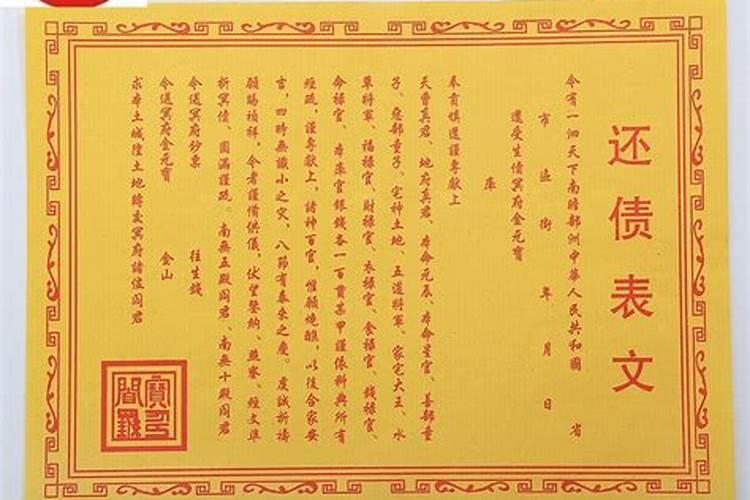 还债表文
今有一泗天下南瞻部洲中華人民共和國 省
市 區 街 年 月 日
還受生債冥府金元寶
庫
奉育填還謹專獻上
天曹真君、地府真君、本命元辰、本命星官、善部童
子、惡部童子、宅神土地、五道將軍、家宅大王、水
草將軍、福祿官、財祿官、衣祿官、食祿官、錢祿官、
命祿官、本庫官銀錢各一百貫某甲謹依科典所有
經疏，謹專獻上，諸神百官，惟願燒醮，以後合家安
言，四時無識小之灾，八節有泰來之慶。虔誠祈禱
願賜禎祥，令者謹備供儀，伏望鑒納、燕寮、經文準
折冥債、圓滿謹疏。南無五殿閻君、南無十殿閻君
令送冥府鈔票 往生錢
令送冥府金元寶 金山
求本土城隍土地轉交冥府諸位閻君